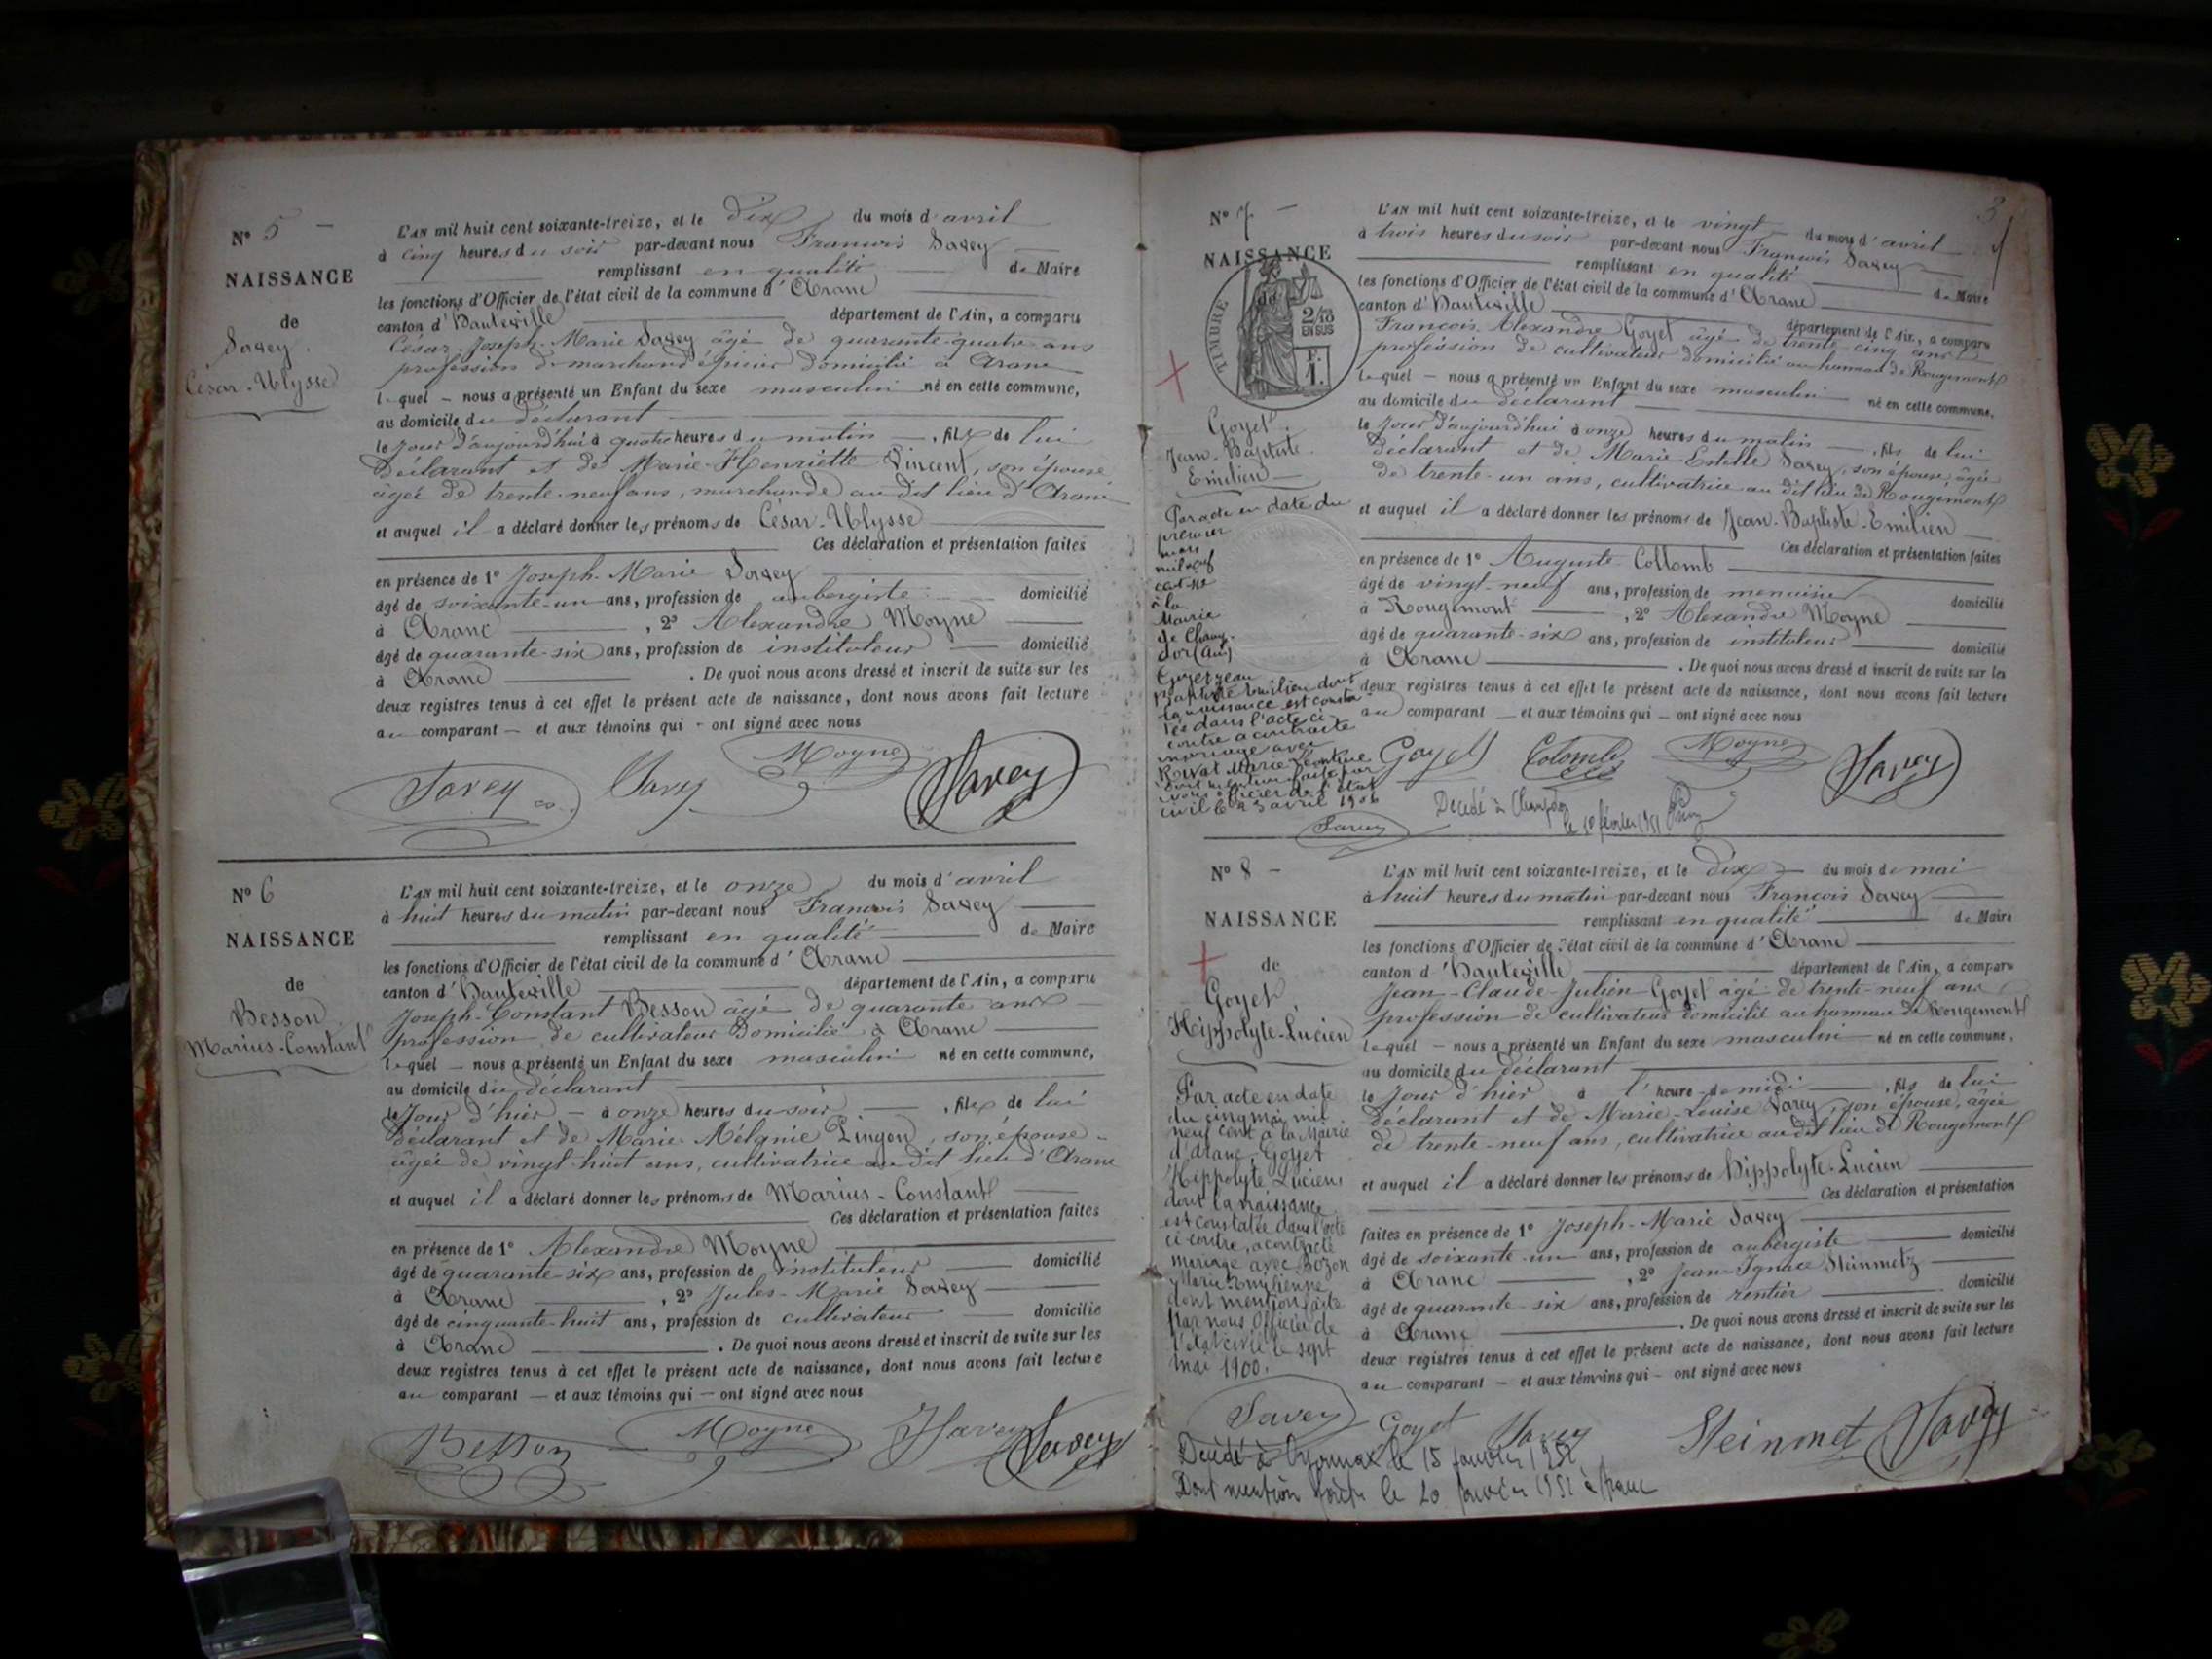 N° 5 —
NAISSANCE
de
Savey
César-Ulysse
L'AN mil huit cent soixante-treize, et le dix du mois d'avril
à cinq heures du soir par-devant nous François Savey
remplissant en qualité de Maire
les fonctions d'Officier de l'état civil de la commune d'Aranc
canton d'Hauteville département de l'Ain, a comparu
César-Joseph-Marie Savey âgé de quarante-quatre ans
profession de marchand épicier domicilié à Aranc
lequel — nous a présenté un Enfant du sexe masculin né en cette commune,
au domicile du déclarant
le jour d'aujourd'hui à quatre heures du matin —, fils de lui
déclarant et de Marie-Henriette Vincent, son épouse
âgée de trente-neuf ans, marchande au dit lieu d'Aranc
et auquel il a déclaré donner les prénoms de César-Ulysse
Ces déclaration et présentation faites
en présence de 1° Joseph-Marie Savey
âgé de soixante-un ans, profession de aubergiste domicilié
à Aranc, 2° Alexandre Moyne
âgé de quarante-six ans, profession de instituteur domicilié
à Aranc. De quoi nous avons dressé et inscrit de suite sur les
deux registres tenus à cet effet le présent acte de naissance, dont nous avons fait lecture
au comparant — et aux témoins qui — ont signé avec nous
Savey Savey Moyne Savey
N° 6
NAISSANCE
de
Besson
Marius-Constant
L'AN mil huit cent soixante-treize, et le onze du mois d'avril
à huit heures du matin par-devant nous François Savey
remplissant en qualité de Maire
les fonctions d'Officier de l'état civil de la commune d'Aranc
canton d'Hauteville département de l'Ain, a comparu
Joseph-Constant Besson âgé de quarante ans
profession de cultivateur domicilié à Aranc
lequel — nous a présenté un Enfant du sexe masculin né en cette commune,
au domicile du déclarant
le jour d'hier — à onze heures du soir —, fils de lui
déclarant et de Marie-Mélanie Pingon, son épouse
âgée de vingt-huit ans, cultivatrice au dit lieu d'Aranc
et auquel il a déclaré donner les prénoms de Marius-Constant
Ces déclaration et présentation faites
en présence de 1° Alexandre Moyne
âgé de quarante-six ans, profession de instituteur domicilié
à Aranc, 2° Jules-Marie Savey
âgé de cinquante-huit ans, profession de cultivateur domicilié
à Aranc. De quoi nous avons dressé et inscrit de suite sur les
deux registres tenus à cet effet le présent acte de naissance, dont nous avons fait lecture
au comparant — et aux témoins qui — ont signé avec nous
Besson Moyne J Savey Savey
3
N° 7 —
NAISSANCE
de
TIMBRE
2/10
EN SUS
F.
1.
Goyet
Jean-Baptiste
Emilien
Par acte en date du
premier
mars
mil neuf
cent six
à la
Mairie
de Champ-
dor (Ain)
Goyet Jean
Baptiste Emilien dont
la naissance est consta-
tée dans l'acte ci-
contre a contracté
mariage avec
Marie Léontine
dont mention faite par
nous officier de l'état
civil le 3 avril 1906
Savey
L'AN mil huit cent soixante-treize, et le vingt du mois d'avril
à trois heures du soir par-devant nous François Savey
remplissant en qualité de Maire
les fonctions d'Officier de l'état civil de la commune d'Aranc
canton d'Hauteville département de l'Ain, a comparu
François-Alexandre Goyet âgé de trente-cinq ans
profession de cultivateur domicilié au hameau de Rougemont
lequel — nous a présenté un Enfant du sexe masculin né en cette commune,
au domicile du déclarant
le jour d'aujourd'hui à onze heures du matin —, fils de lui
déclarant et de Marie-Estelle Savey, son épouse, âgée
de trente-un ans, cultivatrice au dit lieu de Rougemont
et auquel il a déclaré donner les prénoms de Jean-Baptiste-Emilien
Ces déclaration et présentation faites
en présence de 1° Auguste Collomb
âgé de vingt-neuf ans, profession de menuisier domicilié
à Rougemont, 2° Alexandre Moyne
âgé de quarante-six ans, profession de instituteur domicilié
à Aranc. De quoi nous avons dressé et inscrit de suite sur les
deux registres tenus à cet effet le présent acte de naissance, dont nous avons fait lecture
au comparant — et aux témoins qui — ont signé avec nous
Goyet Colomb Moyne Savey
Décédé à Champdor
le 10 février 1951
N° 8 —
NAISSANCE
de
Goyet
Hippolyte-Lucien
Par acte en date
du cinq mai mil
neuf cent à la Mairie
d'Aranc, Goyet
Hippolyte Lucien
dont la naissance
est constatée dans l'acte
ci-contre, a contracté
mariage avec Bozon
Marie Emilienne
dont mention faite
par nous Officier de
l'état civil le sept
mai 1900.
Savey
L'AN mil huit cent soixante-treize, et le dix du mois de mai
à huit heures du matin par-devant nous François Savey
remplissant en qualité de Maire
les fonctions d'Officier de l'état civil de la commune d'Aranc
canton d'Hauteville département de l'Ain, a comparu
Jean-Claude-Julien Goyet âgé de trente-neuf ans
profession de cultivateur domicilié au hameau de Rougemont
lequel — nous a présenté un Enfant du sexe masculin né en cette commune,
au domicile du déclarant
le jour d'hier à l'heure de midi —, fils de lui
déclarant et de Marie-Louise Savey, son épouse, âgée
de trente-neuf ans, cultivatrice au dit lieu de Rougemont
et auquel il a déclaré donner les prénoms de Hippolyte-Lucien
Ces déclaration et présentation
faites en présence de 1° Joseph-Marie Savey
âgé de soixante-un ans, profession de aubergiste domicilié
à Aranc, 2° Jean-Ignace Steinmetz
âgé de quarante-six ans, profession de rentier domicilié
à Aranc. De quoi nous avons dressé et inscrit de suite sur les
deux registres tenus à cet effet le présent acte de naissance, dont nous avons fait lecture
au comparant — et aux témoins qui — ont signé avec nous
Goyet Savey Steinmet Savey
Décédé à Oyonnax le 15 janvier 1952
Dont mention faite le 20 janvier 1952 à Aranc